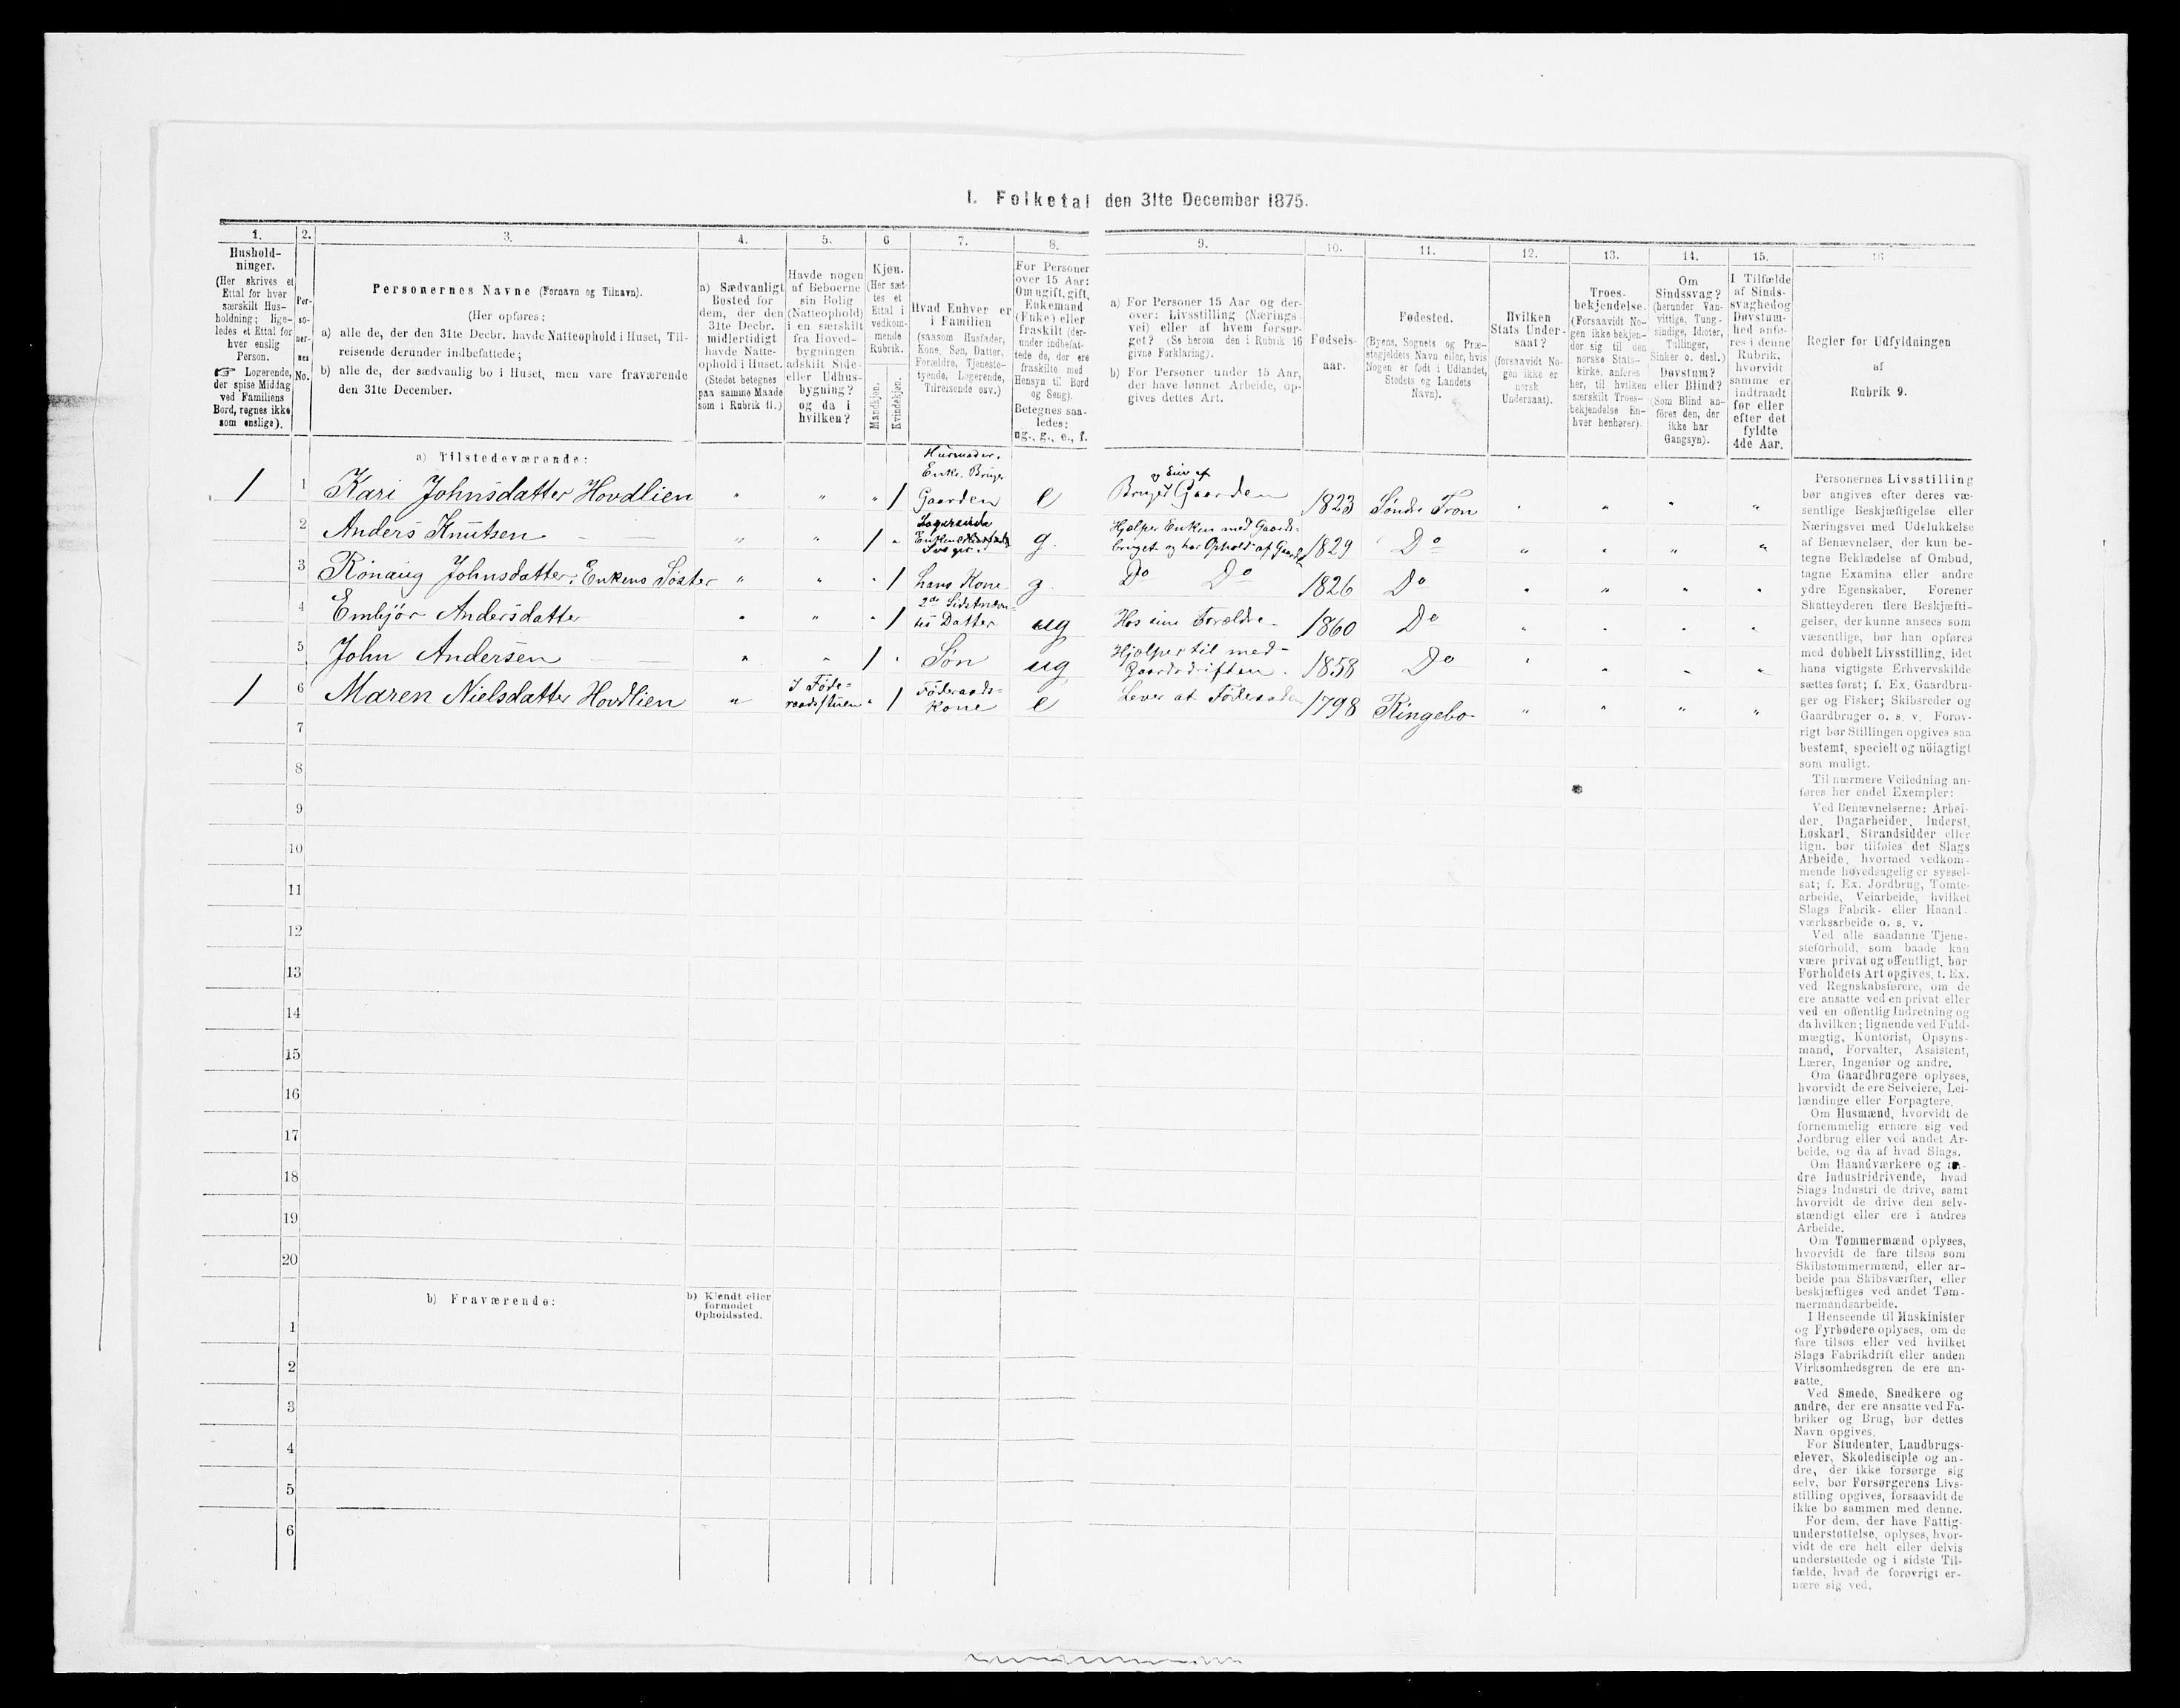 I. Folketal den 31te December 1875.
1. 2. 3. 4. 5. 6 7. 8. 9. 10. 11. 12. 13. 14. 15. 16
Hushold-
ninger.
(Her skrives et
Ettal for hver
særskilt Hus-
holdning; lige-
ledes et Ettal for
hver enslig
Person.
☞ Logerende,
der spise Middag
ved Familiens
Bord, regnes ikke
som enslige).
Per-
so-
ner-
nes
No.
Personernes Navne (Fornavn og Tilnavn).
(Her opføres:
a) alle de, der den 31te Decbr. havde Natteophold i Huset, Til-
reisende derunder indbefattede;
b) alle de, der sædvanlig bo i Huset, men vare fraværende
den 31te December.
a) Sædvanligt
Bosted for
dem, der den
31te Decbr.
midlertidigt
havde Natte-
ophold i Huset.
(Stedet betegnes
paa samme Maade
som i Rubrik 11.)
Havde nogen
af Beboerne
sin Bolig
(Natteophold)
i en særskilt
fra Hoved-
bygningen
adskilt Side-
eller Udhus-
bygning?
og da i
hvilken?
Kjøn.
(Her sæt-
tes et
Ettal i
vedkom-
mende
Rubrik.
Mandkjøn.
Kvindekjøn.
Hvad Enhver er
i Familien
(saasom Husfader,
Kone, Søn, Datter,
Forældre, Tjeneste-
tyende, Logerende,
Tilreisende osv.)
For Personer
over 15 Aar:
Om ugift, gift,
Enkemand
(Enke) eller
fraskilt (der-
under indbefat-
tede de, der ere
fraskilte med
Hensyn til Bord
og Seng).
Betegnes saa-
ledes:
ug., g., e., f.
a) For Personer 15 Aar og der-
over: Livsstilling (Nærings-
vei) eller af hvem forsør-
get? (Se herom den i Rubrik 16
givne Forklaring).
b) For Personer under 15 Aar,
der have lønnet Arbeide, op-
gives dettes Art.
Fødsels-
aar.
Fødested.
(Byens, Sognets og Præ-
stegjeldets Navn eller, hvis
Nogen er født i Udlandet,
Stedets og Landets
Navn).
Hvilken
Stats Under-
saat?
(forsaavidt No-
gen ikke er
norsk
Undersaat).
Troes-
bekjendelse.
(Forsaavidt No-
gen ikke bekjen-
der sig til den
norske Stats-
kirke, anføres
her, til hvilken
særskilt Troes-
bekjendelse En-
hver henhører).
Om
Sindssvag?
(herunder Van-
vittige, Tung-
sindige, Idioter,
Tullinger,
Sinker o. desl.)
Døvstum?
eller Blind?
(Som Blind an-
føres den, der
ikke har
Gangsyn).
I Tilfælde
af Sinds-
svaghed og
Døvstum-
hed anfø-
res i denne
Rubrik,
hvorvidt
samme er
indtraadt
før eller
efter det
fyldte
4de Aar.
Regler for Udfyldningen
af
Rubrik 9.
a) Tilstedeværende:
1 1 Kari Johnsdatter Hovdlien " " " 1 Husmoder. Enke. Bruger Gaarden e Bruger og Eier af Gaarden 1823 Søndre Fron " " " "
2 Anders Knutsen " " 1 " Logerende g. Hjælper Enken med Gaards- bruget og har Ophold af Gaarden 1829 Do " " " "
3 Rönaug Johnsdatter, Enkens Söster " " " 1 hans Kone g. Do Do 1826 Do " " " "
4 Embjör Andersdatter " " " 1 2de Sidstnævn- tes Datter ug Hos sine Forældre 1860 Do " " " "
5 John Andersen " " 1 " Sön ug Hjælper til med Gaardsdriften. 1858 Do " " " "
1 6 Maren Nielsdatter Hovdlien " I Föde- raadsstuen " 1 Föderaads- Kone e Lever af Föderaaden 1798 Ringebo " " " "
7
8
9
10
11
12
13
14
15
16
17
18
19
20
b) Fraværende:
b) Kjendt eller
formodet
Opholdssted.
1
2
3
4
5
6
Personernes Livsstilling
bør angives efter deres væ-
sentlige Beskjæftigelse eller
Næringsvei med Udelukkelse
af Benævnelser, der kun be-
tegne Beklædelse af Ombud,
tagne Examina eller andre
ydre Egenskaber. Forener
Skatteyderen flere Beskjæfti-
gelser, der kunne ansees som
væsentlige, bør han opføres
med dobbelt Livsstilling, idet
hans vigtigste Erhvervskilde
sættes først; f. Ex. Gaardbru-
ger og Fisker; Skibsreder og
Gaardbruger o. s. v. Forøv-
rigt bør Stillingen opgives saa
bestemt, specielt og nöiagtigt
som muligt.
Til nærmere Veiledning an-
føres her endel Exempler:
Ved Benævnelserne: Arbei-
der, Dagarbeider, Inderst,
Løskarl, Strandsidder eller
lign. bør tilføies det Slags
Arbeide, hvormed vedkom-
mende høvedsagelig er syssel-
sat; f. Ex. Jordbrug, Tomte-
arbeide, Veiarbeide, hvilket
Slags Fabrik- eller Haand-
værksarbeide o. s. v.
Ved alle saadanne Tjene-
steforhold, som baade kan
være privat og offentligt, bør
Forholdets Art opgives, t. Ex.
ved Regnskabsførere, om de
ere ansatte ved en privat eller
ved en offentlig Indretning og
da hvilken; lignende ved Fuld-
mægtig, Kontorist, Opsyns-
mand, Forvalter, Assistent,
Lærer, Ingeniør og andre.
Om Gaardbrugere oplyses,
hvorvidt de ere Selveiere, Lei-
lændinge eller Forpagtere.
Om Husmænd, hvorvidt de
fornemmelig ernære sig ved
Jordbrug eller ved andet Ar-
beide, og da af hvad Slags.
Om Haandværkere og an-
dre Industridrivende, hvad
Slags Industri de drive, samt
hvorvidt de drive den selv-
stændigt eller ere i andres
Arbeide.
Om Tømmermænd oplyses,
hvorvidt de fare tilsøs som
Skibstømmermænd, eller ar-
beide paa Skibsværfter, eller
beskjæftiges ved andet Tøm-
mermandsarbeide.
I Henseende til Maskinister
og Fyrbødere oplyses, om de
fare tilsøs eller ved hvilket
Slags Fabrikdrift eller anden
Virksomhedsgren de ere an-
satte.
Ved Smede, Snedkere og
andre, der ere ansatte ved Fa-
briker og Brug, bør dettes
Navn opgives.
For Studenter, Landbrugs-
elever, Skoledisciple og an-
dre, der ikke forsørge sig
selv, bør Forsørgerens Livs-
stilling opgives, forsaavidt de
ikke bo sammen med denne.
For dem, der have Fattig-
understøttelse, oplyses, hvor-
vidt de ere helt eller delvis
understøttede og i sidste Til-
fælde, hvad de forøvrigt er-
nære sig ved.